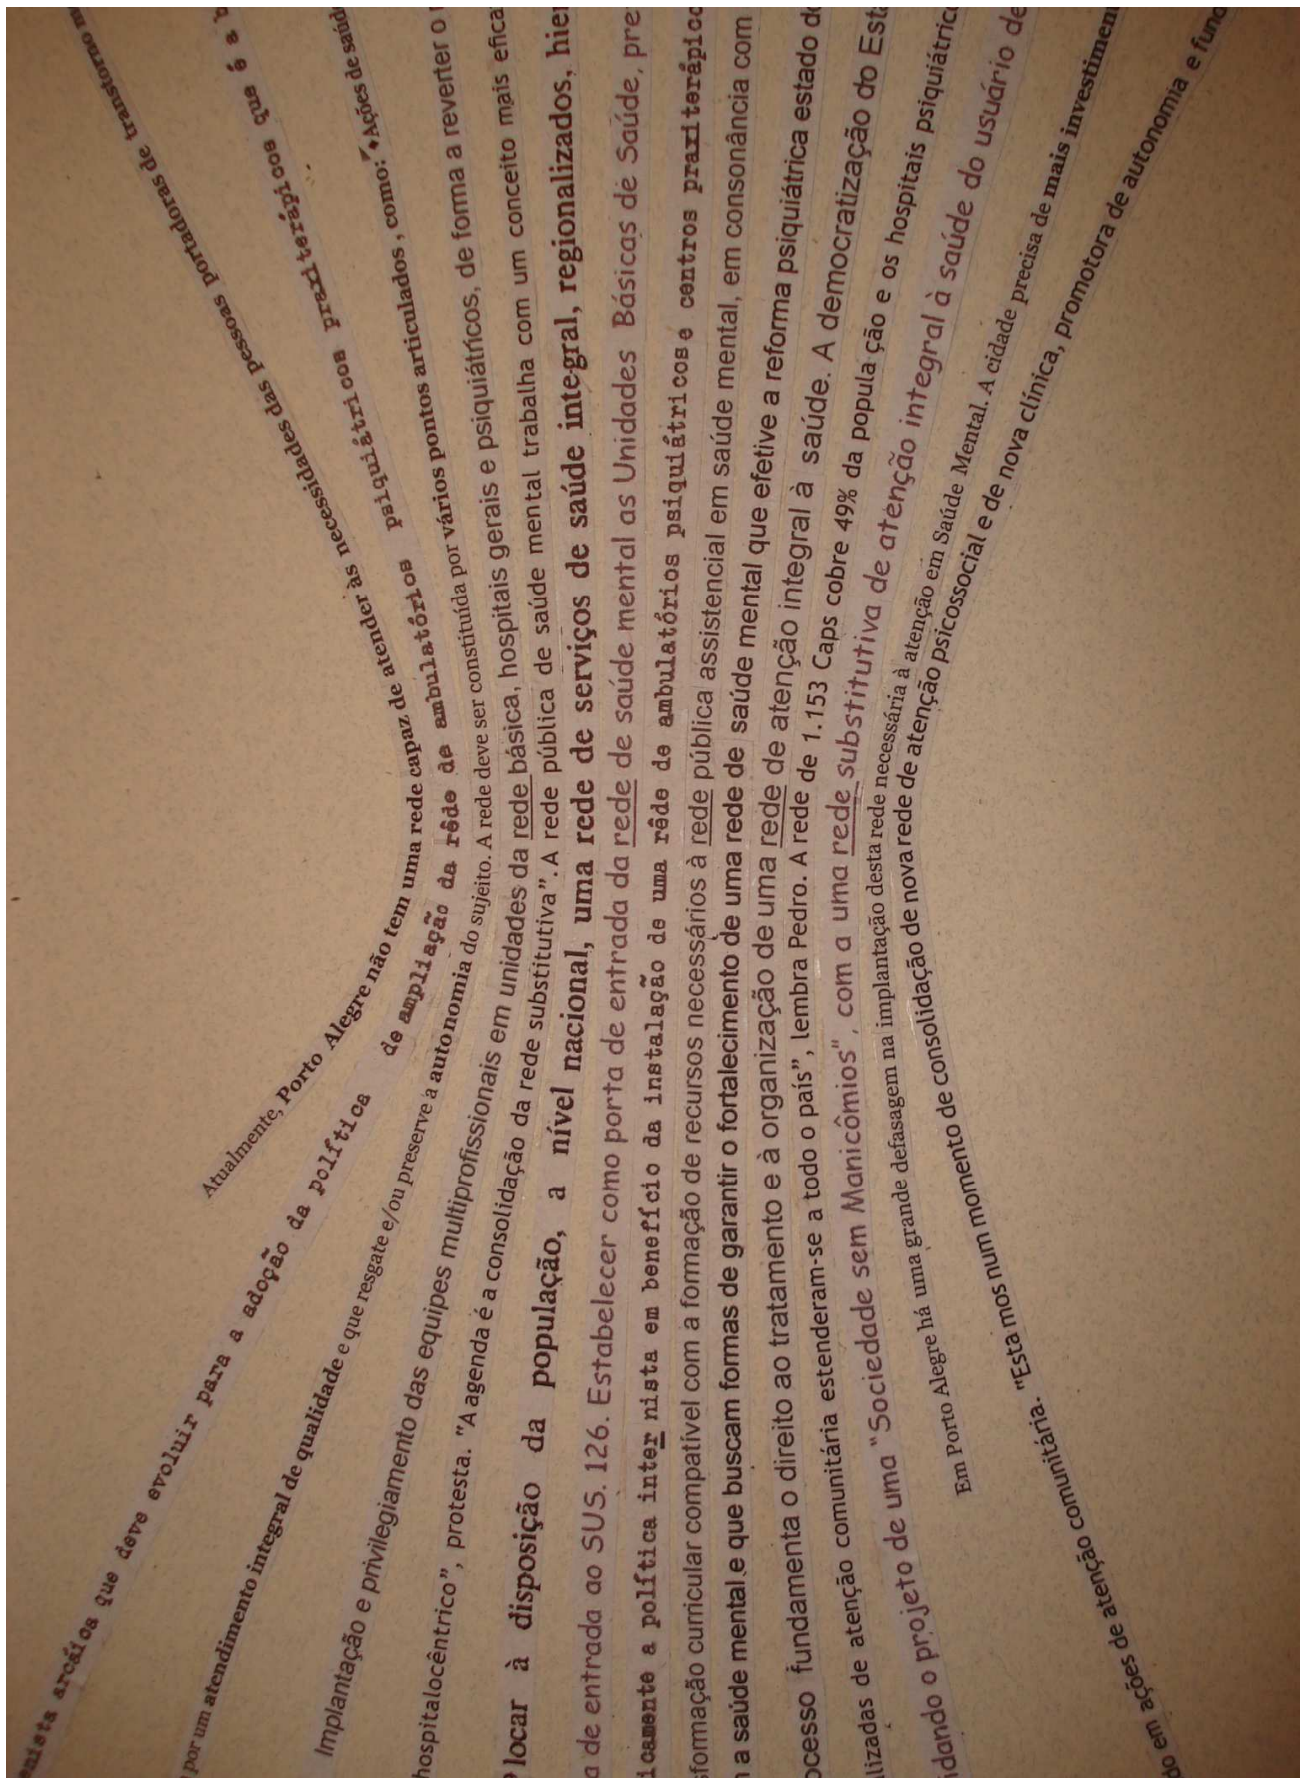 Atualmente, Porto Alegre não tem uma rede capaz de atender às necessidades das pessoas portadoras de transtorno
arcáica que deve evoluir para a adoção da política de ampliação da rêde de ambulatórios psiquiátricos praxiterápicos que é a
por um atendimento integral de qualidade e que resgate e/ou preserve a autonomia do sujeito. A rede deve ser constituída por vários pontos articulados, como: Ações de saúde
Implantação e privilegiamento das equipes multiprofissionais em unidades da rede básica, hospitais gerais e psiquiátricos, de forma a reverter o
hospitalocêntrico", protesta. "A agenda é a consolidação da rede substitutiva". A rede pública de saúde mental trabalha com um conceito mais
locar à disposição da população, a nível nacional, uma rede de serviços de saúde integral, regionalizados,
de entrada ao SUS. 126. Estabelecer como porta de entrada da rede de saúde mental as Unidades Básicas de Saúde,
icamente a política inter nista em benefício da instalação de uma rêde de ambulatórios psiquiátricos e centros praxiterápico
sformação curricular compatível com a formação de recursos necessários à rede pública assistencial em saúde mental, em consonância com
a saúde mental e que buscam formas de garantir o fortalecimento de uma rede de saúde mental que efetive a reforma psiquiátrica estado
ocesso fundamenta o direito ao tratamento e à organização de uma rede de atenção integral à saúde. A democratização do Est
lizadas de atenção comunitária estenderam-se a todo o país", lembra Pedro. A rede de 1.153 Caps cobre 49% da popula ção e os hospitais psiquiátric
idando o projeto de uma "Sociedade sem Manicômios", com a uma rede substitutiva de atenção integral à saúde do usuário de
Em Porto Alegre há uma grande defasagem na implantação desta rede necessária à atenção em Saúde Mental. A cidade precisa de mais investimen
do em ações de atenção comunitária. "Esta mos num momento de consolidação de nova rede de atenção psicossocial e de nova clínica, promotora de autonomia e